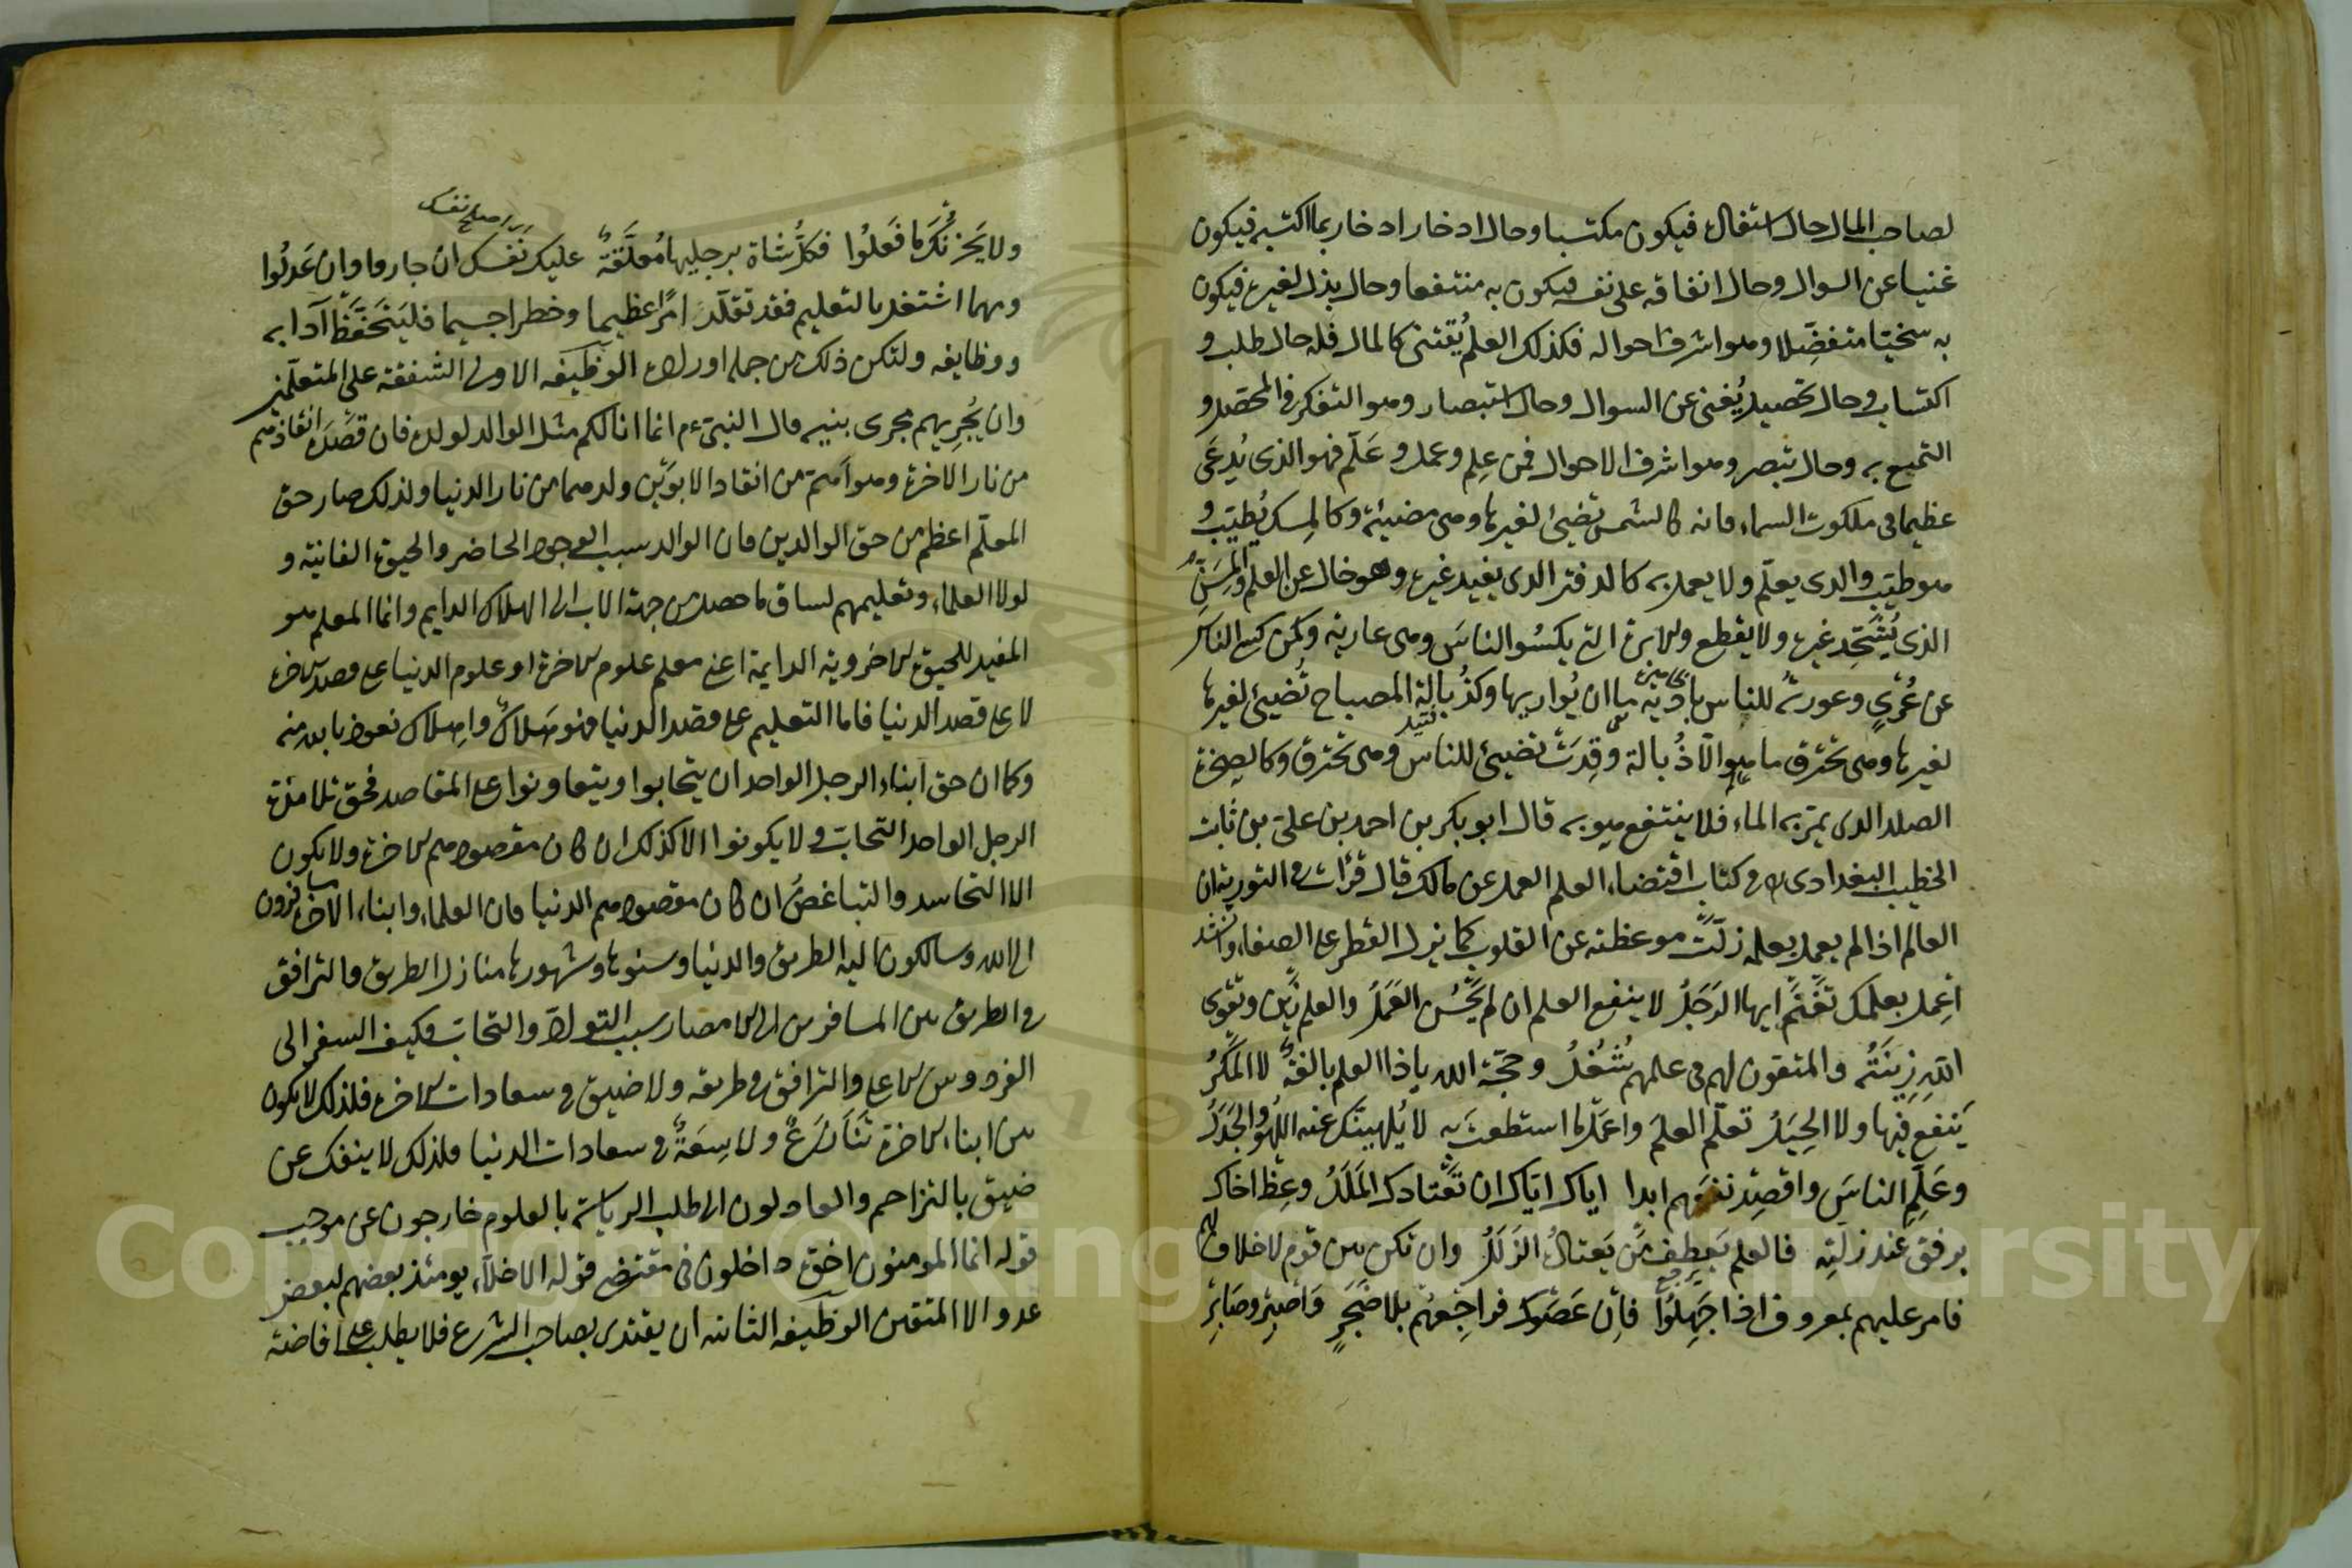 لصاحب المال حال استفال فيكون مكتسبا وحال ادخار ادخار بما اكتسبه فيكون
غنيا عن السوال وحال انفاقه على نفسه فيكون به منتفعا وحال بذل لغيره فيكون
به سخيا متفضلا وهو اشرف احواله فكذلك العلم يقتنى كالمال فله حال طلب و
اكتساب وحال تحصيل يغنى عن السوال وحال استبصار وهو التفكر فى المحصل و
التمتع به وحال تبصر وهو اشرف الاحوال فمن علم وعمل و علم فهو الذى يدعى
عظيما فى ملكوت السماء فانه كالشمس تضيئ لغيرها وهى مضيئة وكالمسك يطيب و
هو طيب والدى يعلم ولا يعمل به كالدفتر الدى يفيد غيره وهو خال عن العلم والمسن
الذى يشحذ غيره ولا يقطع والابرة التى يكسوا الناس وهى عارية وكمن كسى الناس
عن عرى وعورته للناس بادية ما ان يواريها وكذبالة المصباح تضيئ لغيرها
لغيرها وهى تحترق ما هو الا ذبالة وقدت تضيئ للناس وهى تحترق وكالصخرة
الصلد الدى يمر به الماء فلا ينتفع هو به قال ابو بكر بن احمد بن على بن ثابت
الخطيب البغدادى فى كتاب اقتضاء العلم العمل عن مالك قال قرأت فى التورية ان
العالم اذا لم يعمل بعلمه زلت موعظته عن القلوب كما يزل القطر على الصفا وانشد
اعمل بعلمك تغنم ايها الرجل لا ينفع العلم ان لم يحسن العمل والعلم زين وتقوى
الله زينته والمتقون لهم فى علمهم شغل وحجة الله ياذا العلم بالغة لا المكر
ينفع فيها ولا الحيل تعلم العلم واعمل ما استطعت به لا يلهينك عنه اللهو والجدل
وعلم الناس واقصد نفعهم ابدا اياك اياك ان تعتادك الملل وعظ اخاك
برفق عند زلته فالعلم يعطف من يعتاله الزلل وان تكن بين قوم لا خلاق لهم
فامر عليهم بمعروف اذا جهلوا فان عصوك فراجعهم بلا ضجر واصبر وصابر
ولا يحزنك ما فعلوا فكل شاة برجليها معلقة عليك نفسك ان جاروا وان عدلوا
ومهما اشتغل بالتعليم فقد تقلد امرا عظيما وخطرا جسيما فليتحفظ آدابه
ووظايفه ولتكن ذلك من جملة اوراده الوظيفه الاولى الشفقة على المتعلمين
وان يجريهم مجرى بنيه قال النبى م انما انا لكم مثل الوالد لولده فان قصده انقاذهم
من نار الاخرة وهو اهم من انقاد الابوين ولدهما من نار الدنيا ولذلك صار حق
المعلم اعظم من حق الوالدين فان الوالد سبب الوجود الحاضر والحيوة الفانية و
لولا العلماء وتعليمهم لساق ما حصل من جهة الاب الى الهلاك الدايم وانما المعلم هو
المفيد للحيوة الاخروية الدايمة اعنى معلم علوم الاخرة او علوم الدنيا على قصد الاخرة
لا على قصد الدنيا فاما التعليم على قصد الدنيا فهو هلاك واهلاك نعوذ بالله منه
وكما ان حق ابناء الرجل الواحد ان يتحابوا ويتعاونوا على المقاصد فحق تلامذة
الرجل الواحد التحاب ولا يكونوا الا كذلك ان كان مقصودهم الاخرة ولا يكون
الا التحاسد والتباغض ان كان مقصودهم الدنيا فان العلماء وابناء الاخرة مسافرون
الى الله وسالكون اليه الطريق والدنيا وسنوها وشهورها منازل الطريق والترافق
فى الطريق بين المسافرين الى الامصار سبب التواد والتحاب فكيف السفر الى
الفردوس الاعلى والترافق فى طريقه ولا ضيق فى سعادات الاخرة فلذلك لا يكون
بين ابناء الاخرة تنازع ولا سعة فى سعادات الدنيا فلذلك لا ينفك عن
ضيق بالتزاحم والعادلون الى طلب الرياسة بالعلوم خارجون عن موجب
قوله انما المومنون اخوة داخلون فى مقتضى قوله الاخلاء يومئذ بعضهم لبعض
عدو الا المتقين الوظيفه الثانيه ان يقتدى بصاحب الشرع فلا يطلب على افاضة
Copyright © King Saud University